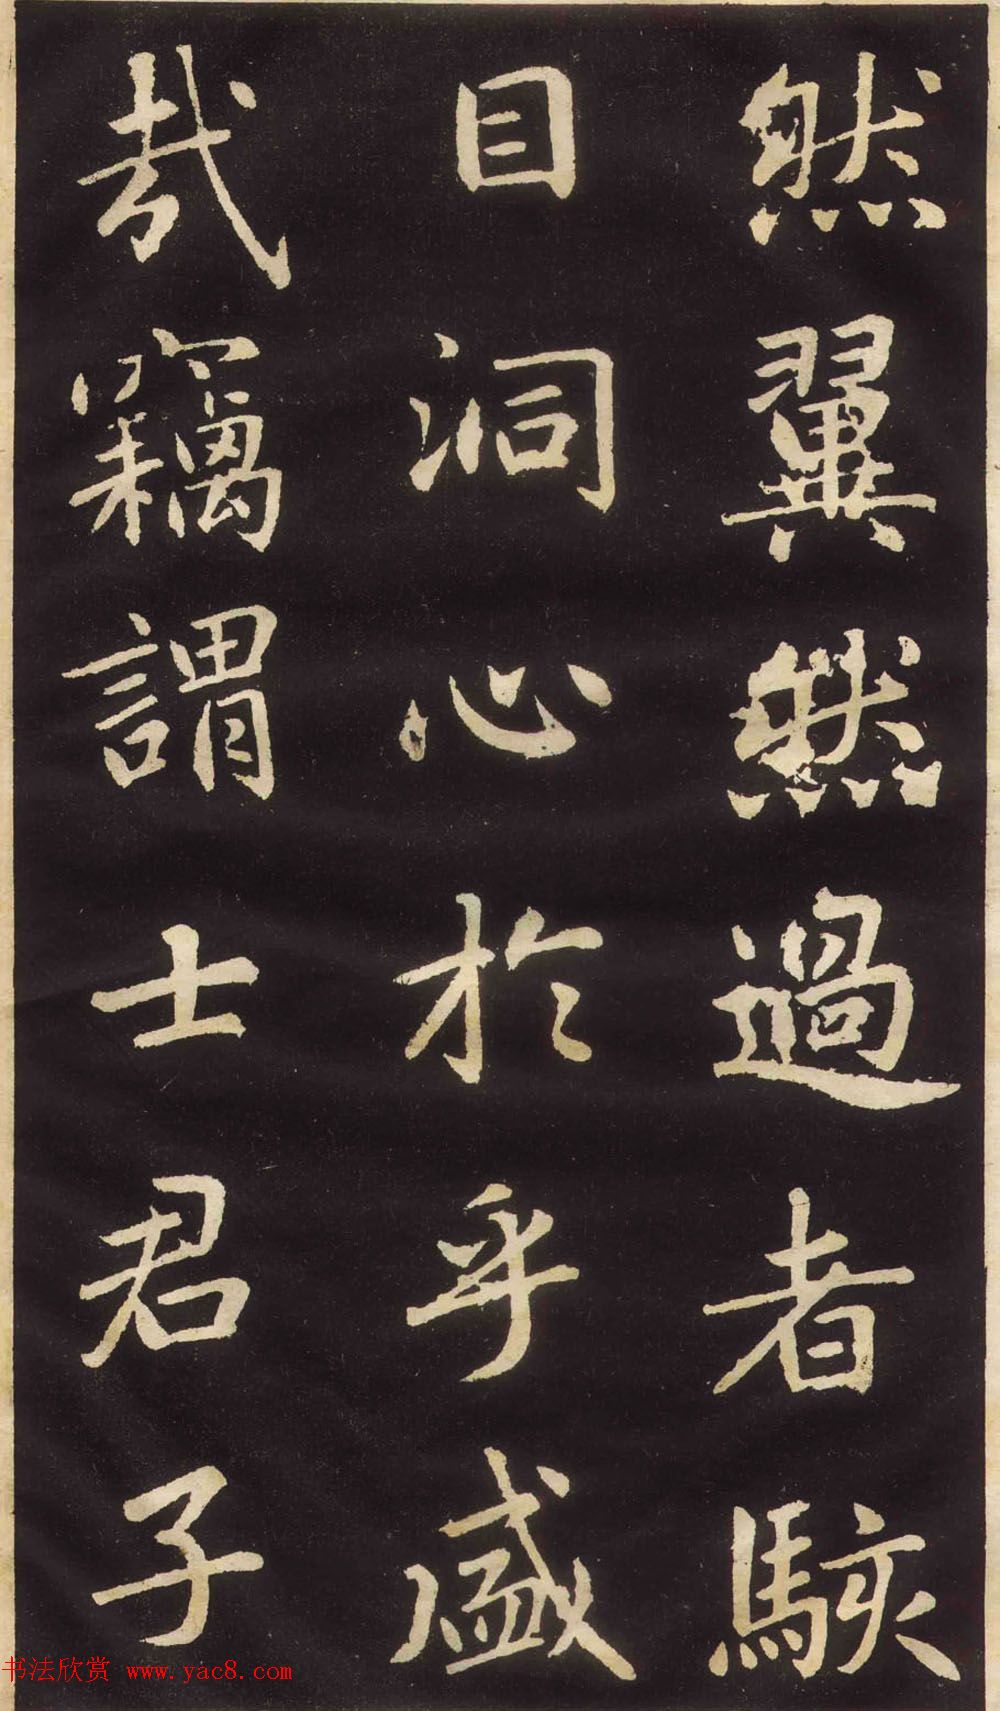 然翼然過者駭
目洞心於乎盛
哉竊謂士君子
书法欣赏 www.yac8.com